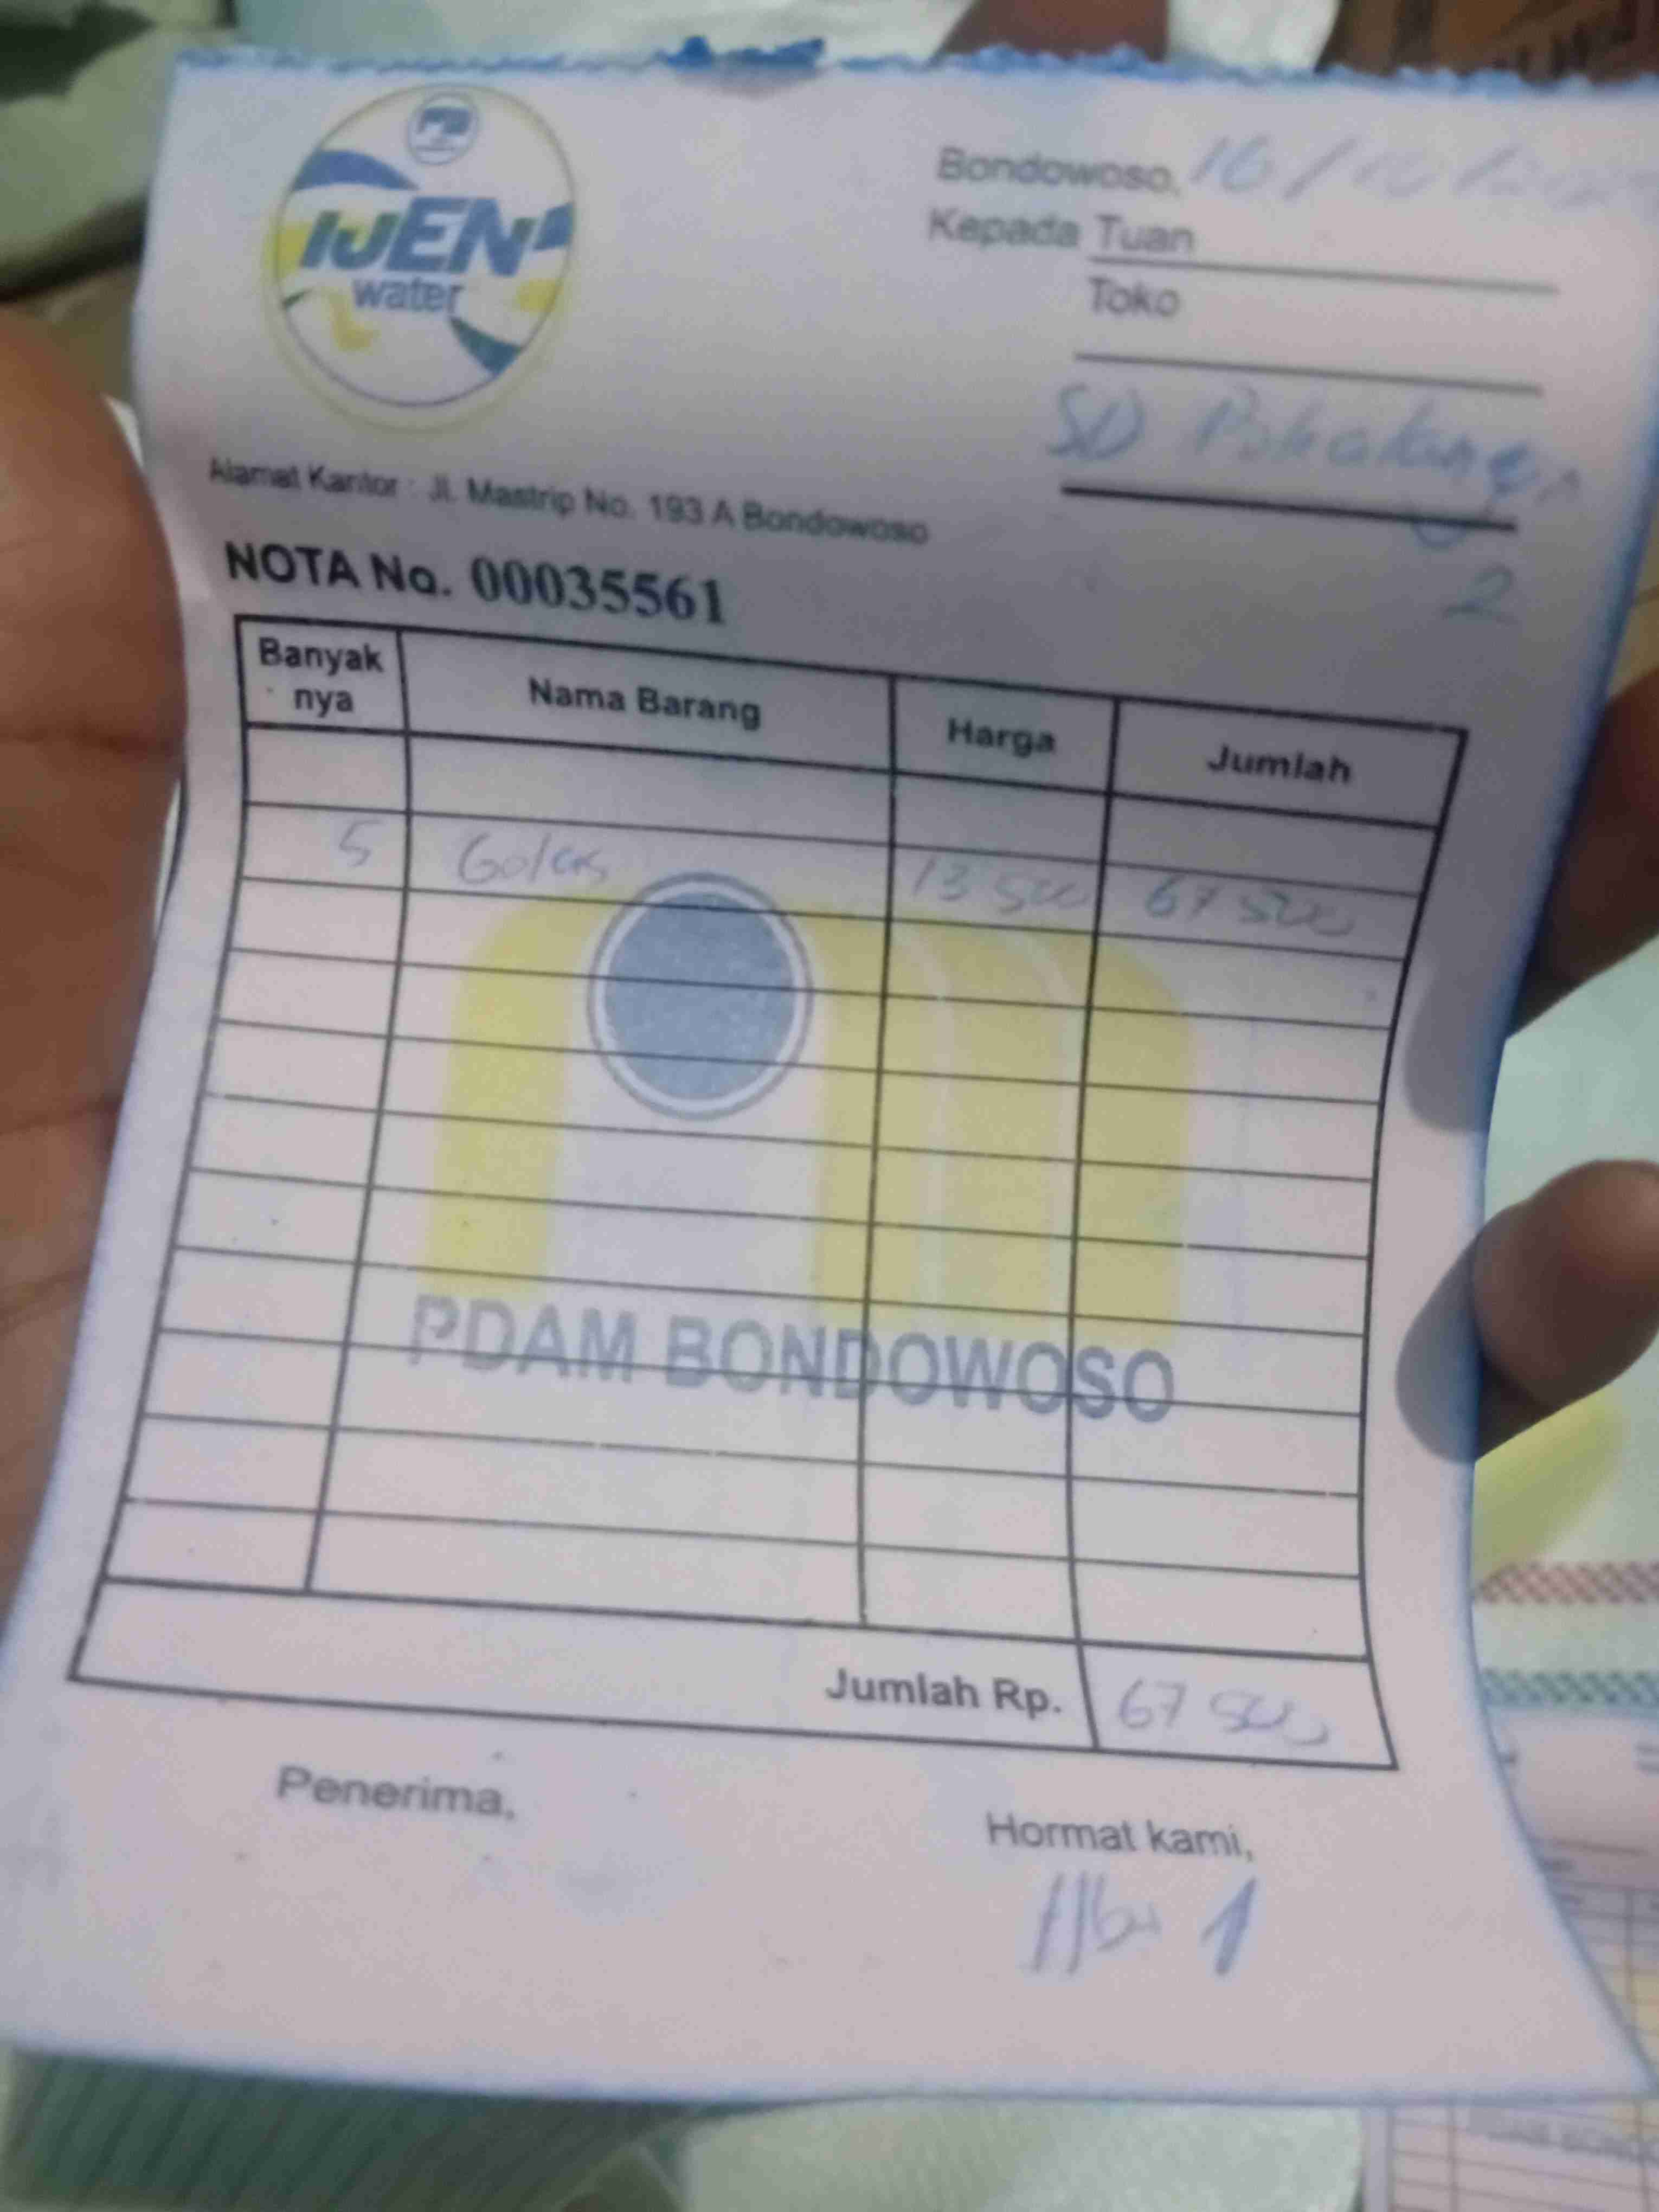 IJEN
water
Bondowoso, 16/10/
Kepada Tuan
Toko
SD
2
Alamat Kantor : Jl. Mastrip No. 193 A Bondowoso
NOTA No. 00035561
Banyak nya Nama Barang Harga Jumlah
5 Gelas 13 500 67 500
PDAM BONDOWOSO
Jumlah Rp. 67 500
Penerima,
Hormat kami,